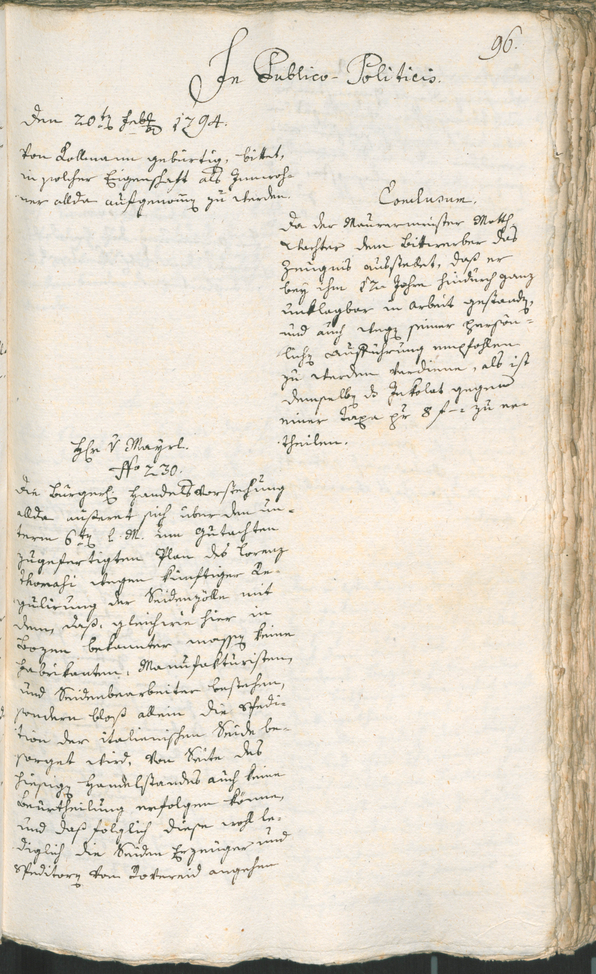 96.
In Publico-Politicis.
den 20t Feb 1794.
von Kollmann gebürtig, bittet,
in solcher Eigenschaft als Innwoh-
ner allda aufgenomen zu werden.
Conclusum.
da der Maurermeister Math
dem Bittwerber das
Zeugnis ausstellet, daß er
bey ihm Jahre hindurch ganz
unklagbar in Arbeit gestanden,
und auch wegen seiner persön-
lichen Aufführung empfohlen
zu werden verdiene, als ist
demselben das Inkolat gegen
einer Taxe pr 8 f zu er-
theilen.
Hr v Mayrl.
No 230.
die Bürgerl Handelsvorstehung
allda äußeret sich über den un-
term 6ten l. M. um Gutachten
zugefertigten Plan des Lorenz
Thomasi wegen künftiger Re-
gulirung der Seidenzölle mit
deme, daß, gleichwie hier in
Bozen bekannter massen keine
Fabrikanten, Manufakturisten,
und Seidenbearbeiter bestehen,
sondern bloß allein die Spedi-
tion der italienischen Seide be-
sorget wird, von Seite des
hiesigen Handelstandes auch keine
Beurtheilung erfolgen könne,
und daß folglich diese wohl le-
diglich die Seiden Erzeuger und
Speditorn von Rovereid angehen